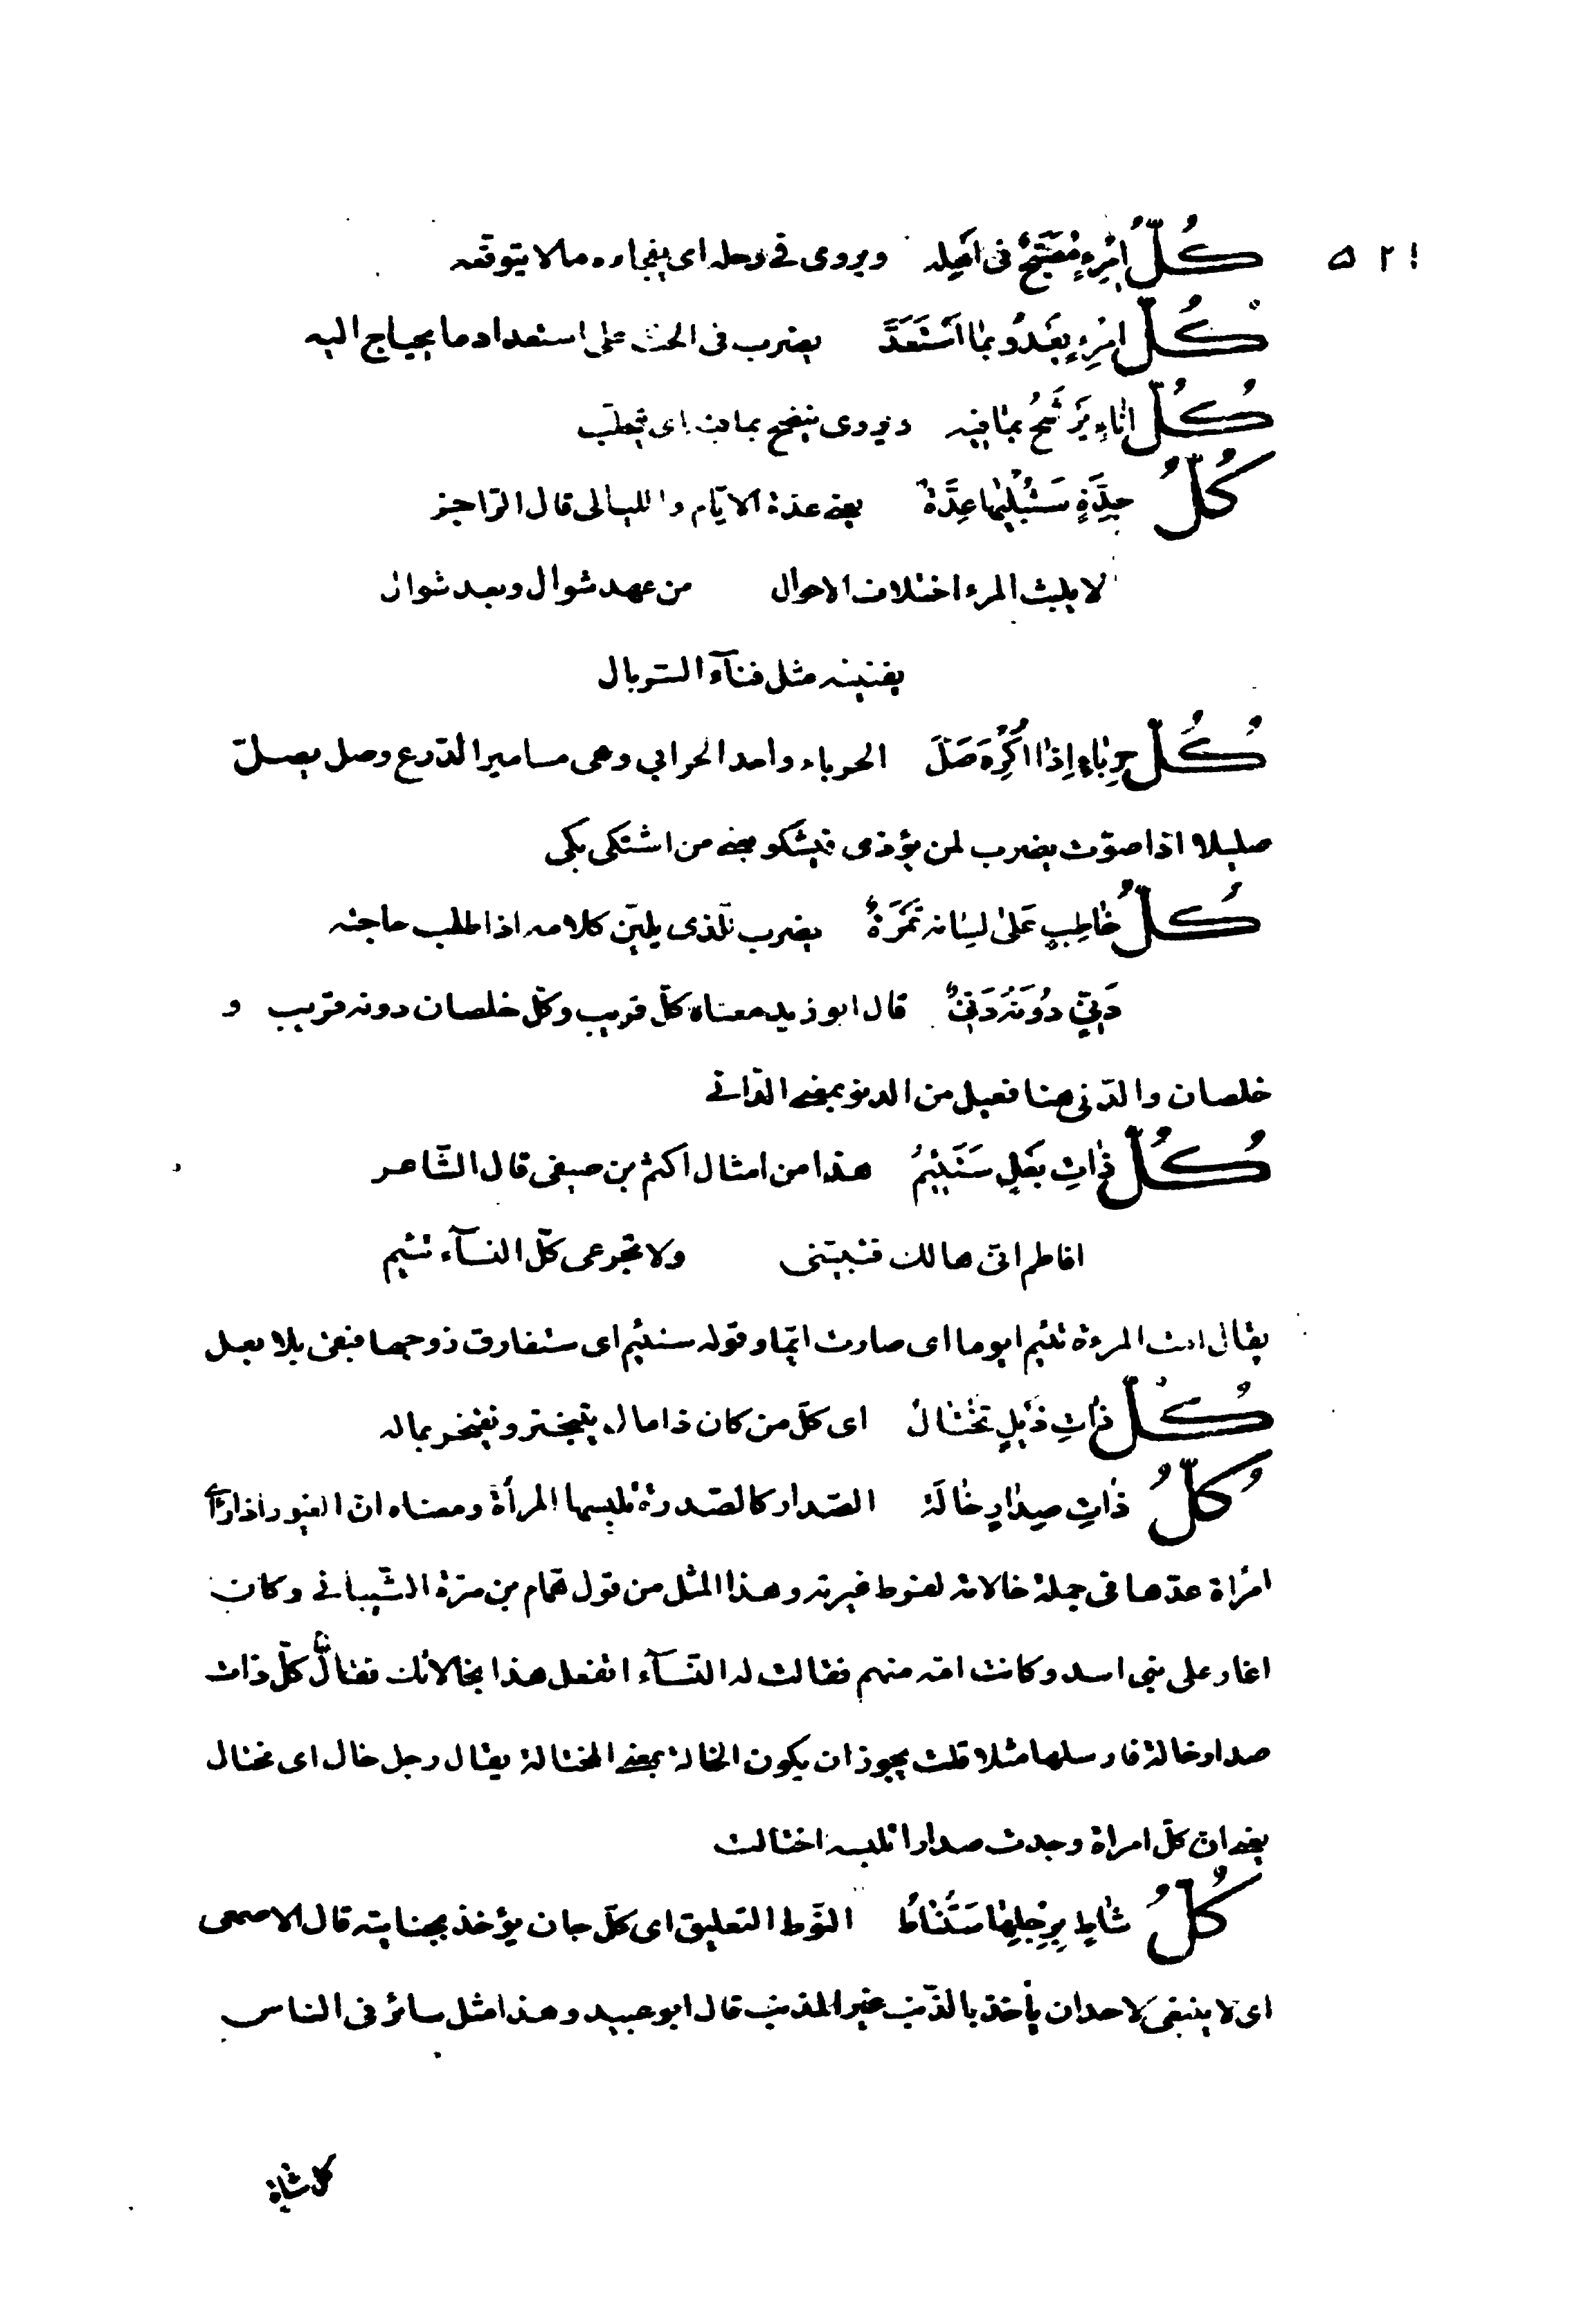 ٥٢١
كُلُّ امْرِءٍ مُصَبَّحٌ فى اَهْلِه ويروى فى رحله اى يفجاؤه مالا يتوقّعه
كُلُّ امْرِءٍ يَعْدُو بِمَا اسْتَعَدَّ يضرب فى الحث على استعداد ما يحتاج اليه
كُلُّ اِنَاءٍ يَرْشَحُ بِمَا فِيْه ويروى ينضح بما فيه اى يتحلّب
كُلُّ جِدَّةٍ سَتُبْلِيْهَا عِدَّةٌ يعنى عدة الايّام والليالى قال الرّاجز
لا يلبث المرء اختلاف الاحوال من عهد شوال وبعد شوال
يفنينه مثل فنآء السّربال
كُلُّ حِرْبَاءٍ اِذَا اُكْرِهَ صَلَّ الحرباء واحد الحرابي وهى مسامير الدّرع وصل يصلّ
صليلا اذا صوّت يضرب لمن يؤذى فيشكو يعنى من اشتكى بكى
كُلُّ خَاطِبٍ عَلىٰ لِسَانه تَمْرَةٌ يضرب للّذى يليّن كلامه اذا طلب حاجته
دَنِيٍّ دُوْنَهُ دَنِيٌّ قال ابو زيد معناه كلّ قريب وكلّ خلصان دونه قريب و
خلصان والدّنى هنا فعيل من الدنو بمعنى الدّانى
كُلُّ ذَاتِ بَعْلٍ سَتَئِيْمُ هذا من امثال اكثم بن صيفى قال الشّاعر
افاطم انّى هالك فتبيّنى ولا تجزعى كلّ النسآء تئيم
يقال امت المرءة تئيم ايوما اى صارت ايّما وقوله ستئيم اى ستفارق زوجها فبقى بلا بعل
كُلُّ ذَاتِ ذَيْلٍ تَخْتَالُ اى كلّ من كان ذا مال يتبختر ويفتخر بماله
كُلُّ ذَاتِ صِدَارٍ خَالَة الصّدار كالصّدرة تلبسها المرأة ومعناه انّ الغيور اذا رآى
امرأة عدّها فى جملة خالاته لفرط غيرته وهذا المثل من قول همّام بن مرّة الشّيبانى وكان
اغار على بنى اسد وكانت امّه منهم فقالت له النّسآء اتفعل هذا بخالاتك فقال كلّ ذات
صدار خالة فارسلها مثلا قلت يجوز ان يكون الخالة بمعنى المختالة يقال رجل خال اى مختال
يعنى ان كلّ امراة وجدت صدارا تلبسه اختالت
كُلُّ شَاةٍ بِرِجْلِهَا سَتُنَاطُ النّوط التعليق اى كلّ جان يؤخذ بجنايته قال الاصمعى
اى لا ينبغى لاحد ان يأخذ بالذّنب غير المذنب قال ابو عبيد وهذا مثل سائر فى الناس
كل شاة